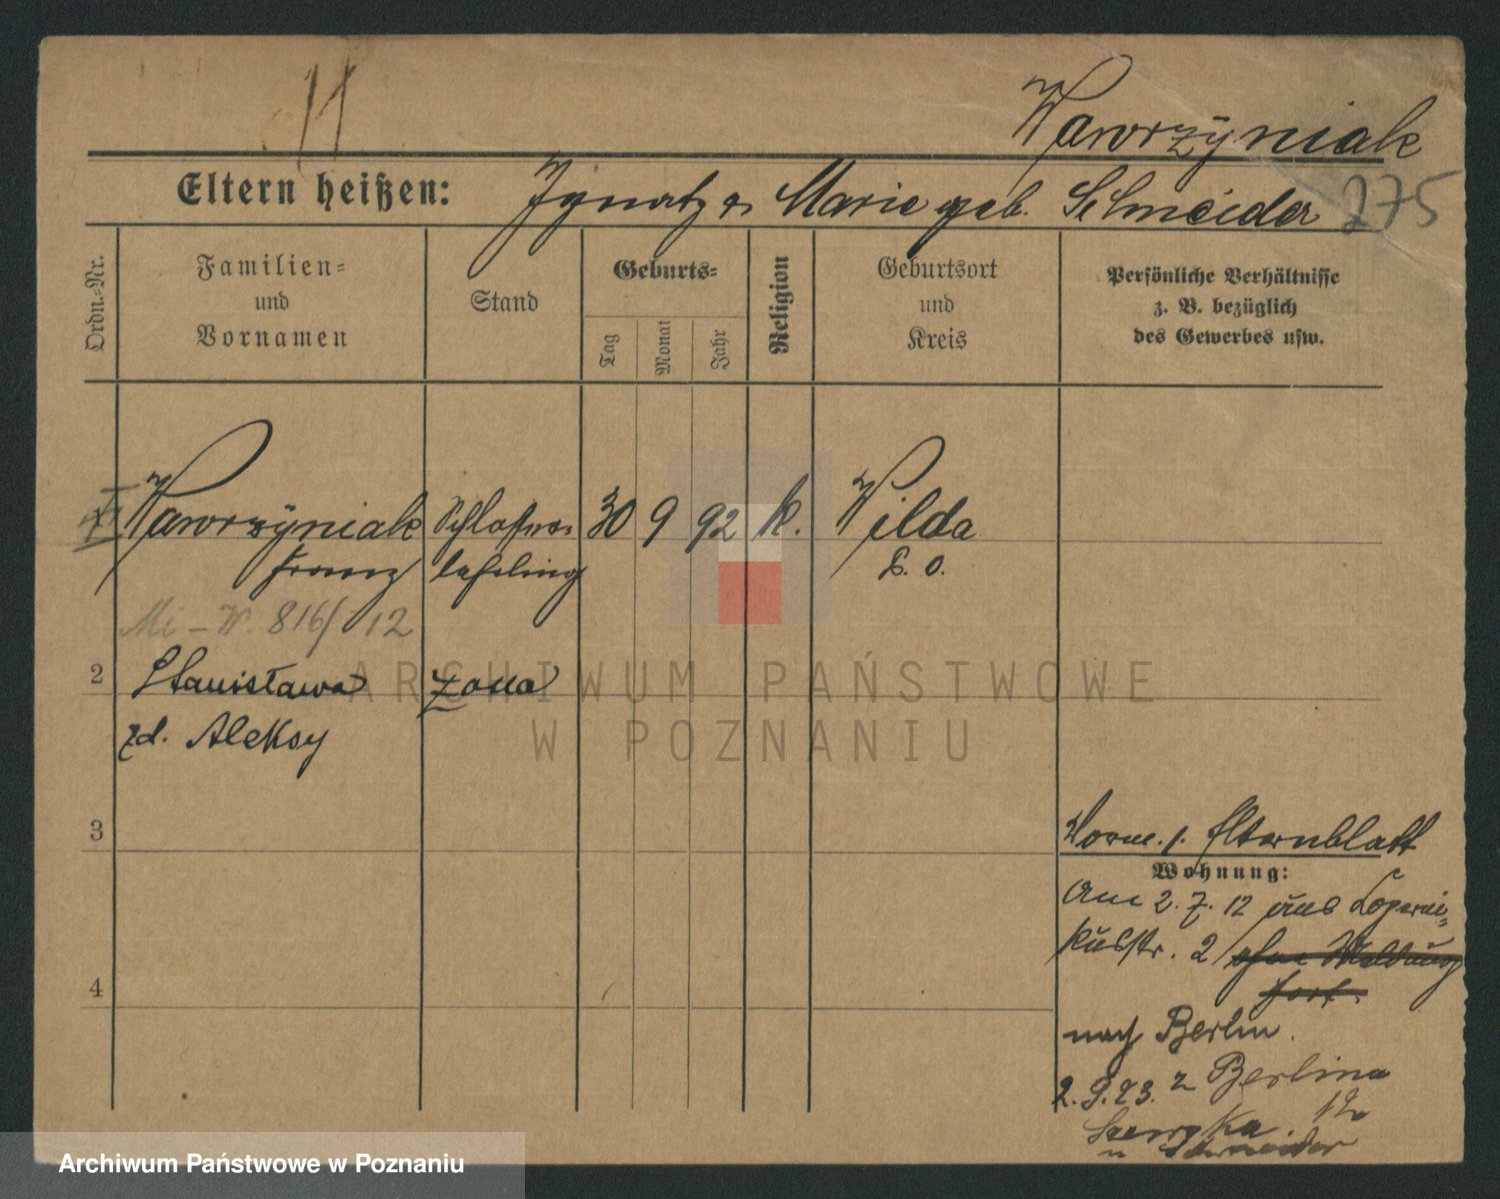 Wawrzyniak
Eltern heißen: Ignatz u. Marie geb. Schneider 275
Ordn.-Nr.
Familien-
und
Vornamen
Stand
Geburts-
Tag
Monat
Jahr
Religion
Geburtsort
und
Kreis
Persönliche Verhältnisse
z. B. bezüglich
des Gewerbes usw.
Wawrzyniak Schlosser- 30 9 92 k. Wilda
Franz lehrling P. O.
Mi - W. 816/12
2 Stanisława żona
zd. Aleksy
3
4
Vorm. s. Elternblatt
Wohnung:
Am 2. 7. 12 aus Koperni-
kusstr. 2 ohne Meldung
fort.
nach Berlin.
2. 9. 23. z Berlina
Szewska 12
u Schneider
ARCHIWUM PAŃSTWOWE
W POZNANIU
Archiwum Państwowe w Poznaniu